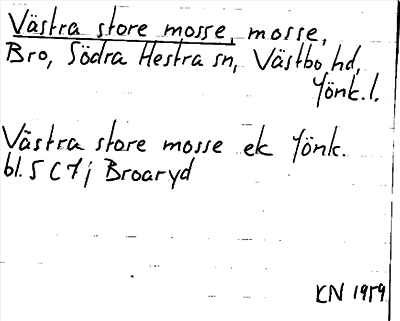 Västra store mosse, mosse,
Bro, Södra Hestra sn, Västbo hd,
Jönk. l.
Västra store mosse ek Jönk.
bl. 5 C 7 j Broaryd
KN 1959